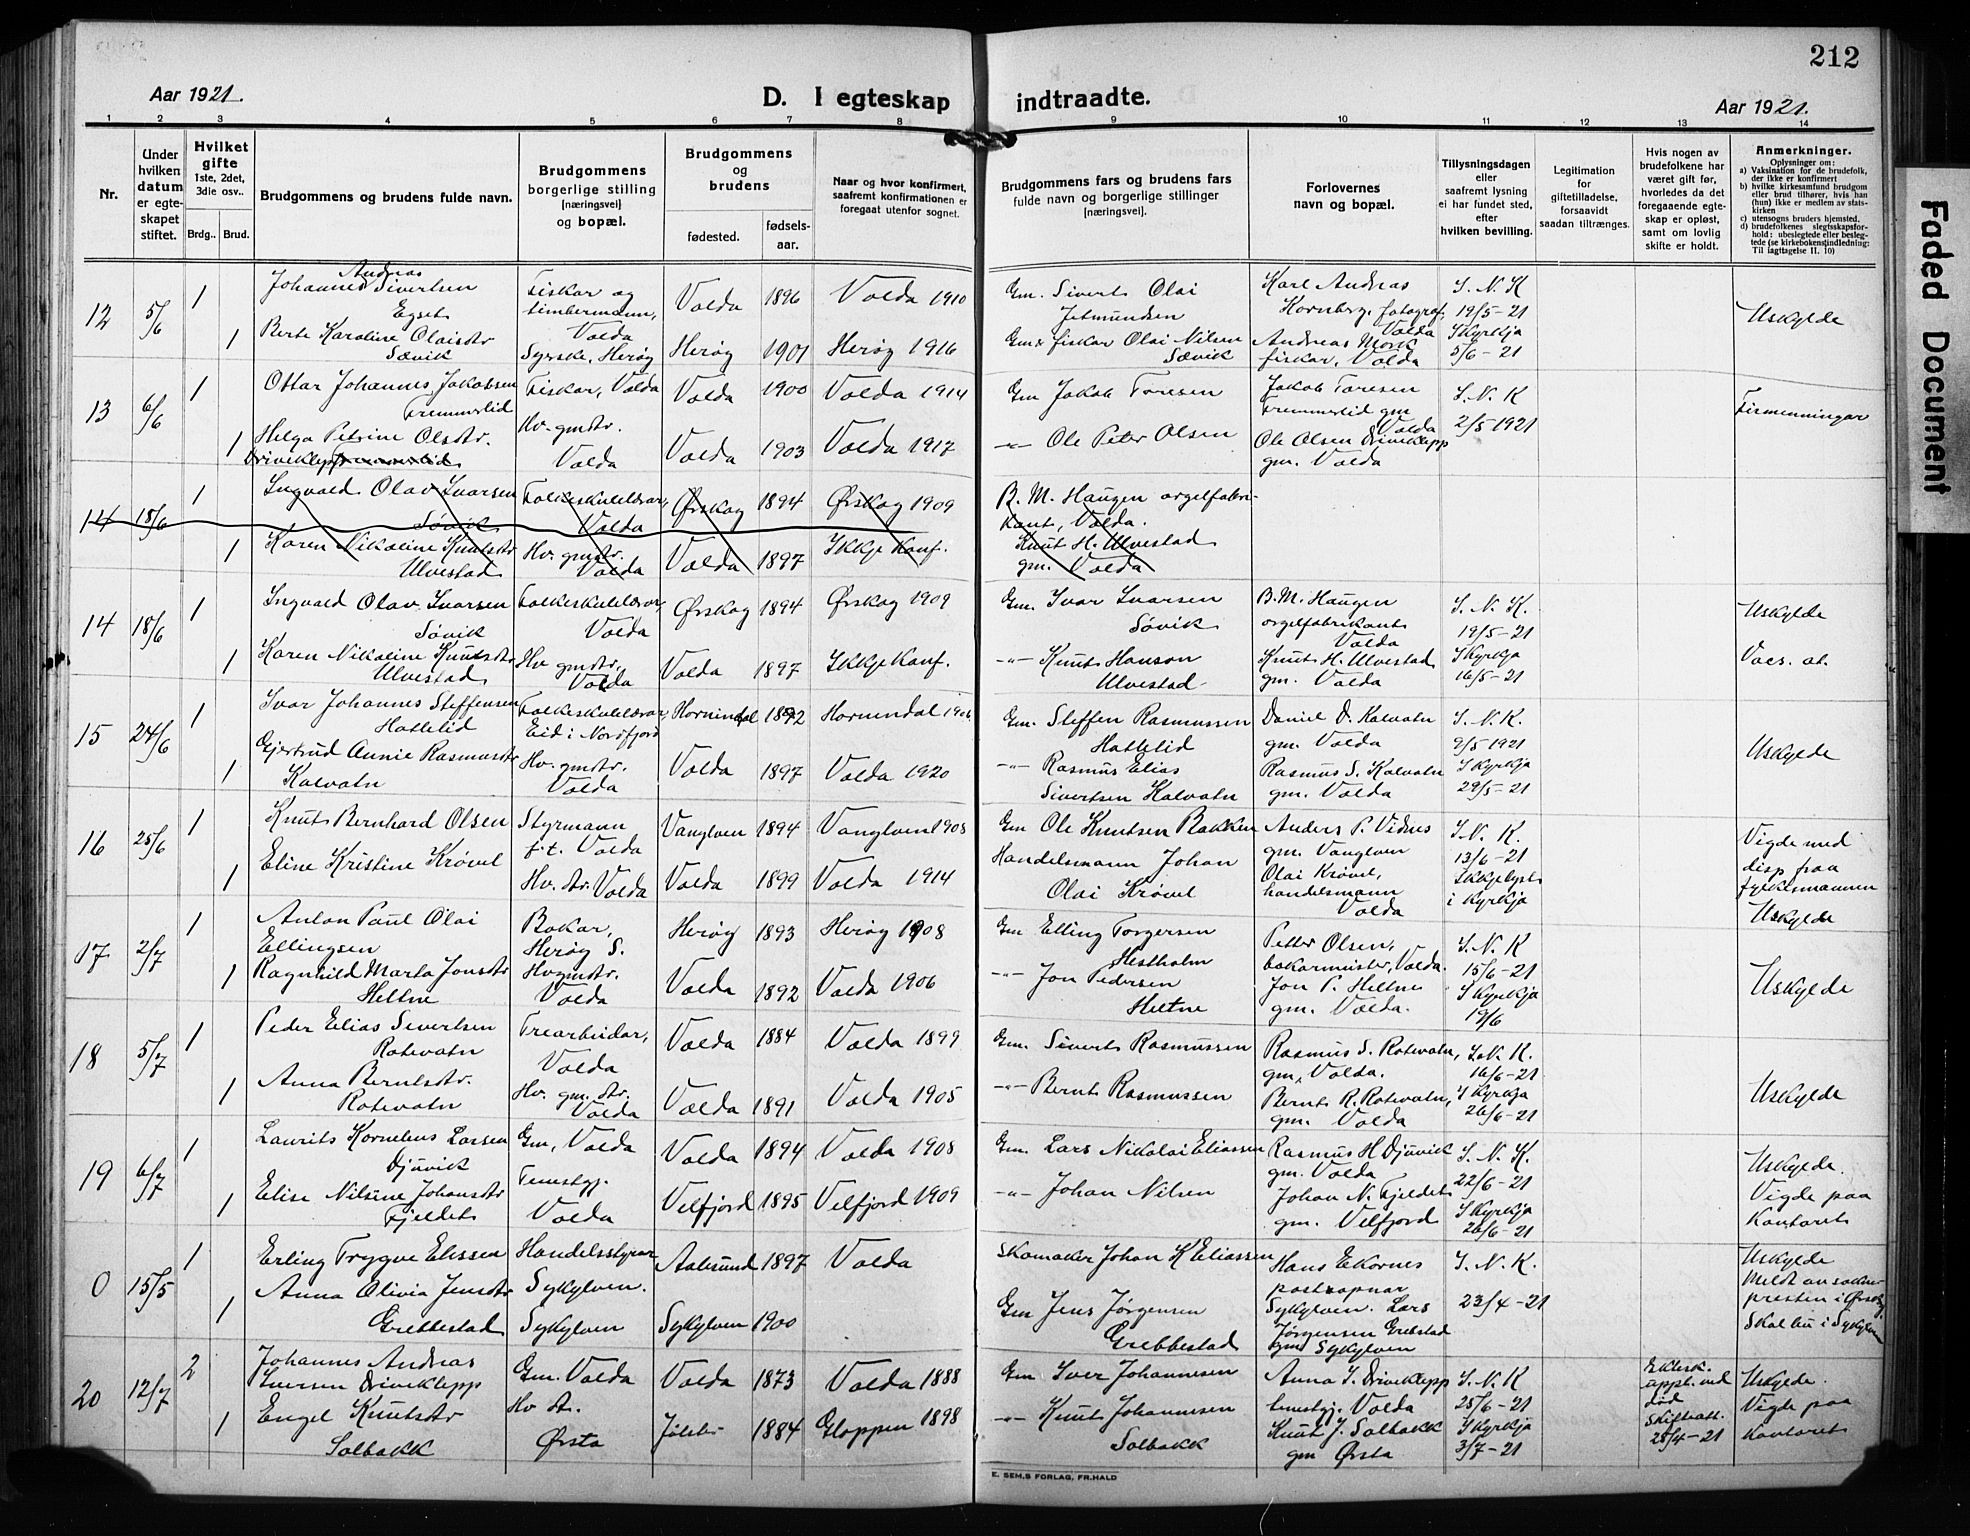 212
Aar 1921.
D. I egteskap indtraadte.
Aar 1921.
1 2 3 4 5 6 7 8 9 10 11 12 13 14
Nr.
Under hvilken datum er egteskapet stiftet.
Hvilket gifte 1ste, 2det, 3die osv..
Brdg.. Brud.
Brudgommens og brudens fulde navn.
Brudgommens borgerlige stilling (næringsvei) og bopæl.
Brudgommens og brudens
fødested. fødselsaar.
Naar og hvor konfirmert, saafremt konfirmationen er foregaat utenfor sognet.
Brudgommens fars og brudens fars fulde navn og borgerlige stillinger (næringsvei).
Forlovernes navn og bopæl.
Tillysningsdagen eller saafremt lysning ei har fundet sted, efter hvilken bevilling.
Legitimation for giftetilladelse, forsaavidt saadan tiltrænges.
Hvis nogen av brudefolkene har været gift før, hvorledes da det foregaaende egteskap er opløst, samt om lovlig skifte er holdt.
Anmerkninger.
Oplysninger om:
a) Vaksination for de brudefolk, der ikke er konfirmert
b) hvilke kirkesamfund brudgom eller brud tilhører, hvis han (hun) ikke er medlem av statskirken
c) utensogns bruders hjemsted.
d) brudefolkenes slegtsskapsforhold: ubeslegtede eller beslegtede (se kirkebokens indledning: Til iagttagelse II. 10)
12 5/6 1 Johannes Andreas Sivertsen Egset Fiskar og timbermann, Volda Volda 1896 Volda 1910 Gm. Sivert Olai Jetmundsen Karl Andreas Kornberg, fotograf, Volda S. N. K 19/5-21
1 Berte Karoline Olaisdtr Sævik Syrske, Herøy Herøy 1901 Herøy 1916 Gm & fiskar Olai Nilsen Sævik Andreas Mork fiskar, Volda I Kyrkja 5/6-21 Uskylde
13 6/6 1 Ottar Johannes Jakobsen Fremmerlid Fiskar, Volda Volda 1900 Volda 1914 Gm Jakob Taresen Jakob Taresen Fremmerlid gm Volda S. N. K 2/5 1921 Firmenningar
1 Helga Petrine Olsdtr. Driveklepp Fremmerlid Hv. gmdtr. Volda Volda 1903 Volda 1917 -"- Ole Peter Olsen Ole Olsen Driveklepp gm. Volda
14 18/6 1 Ingvald Olav Ivarsen Søvik Folkeskulelærar, Volda Ørskog 1894 Ørskog 1909 B. M. Haugen orgelfabrikant, Volda.
1 Karen Nikoline Knutsdtr Ulvestad Hv. gmdtr. Volda Volda 1897 Ikkje Konf. Knut H. Ulvestad gm. Volda
14 18/6 1 Ingvald Olav Ivarsen Søvik Folkeskulelærar, Volda Ørskog 1894 Ørskog 1909 Gm. Ivar Ivarsen Søvik B. M. Haugen orgelfabrikant Volda S. N. K. 19/5-21 Uskylde
1 Karen Nikoline Knutsdtr Ulvestad Hv gmdtr, Volda Volda 1897 Ikkje Konf. -"- Knut Hanson Ulvestad Knut H. Ulvestad gm. Volda I Kyrkja 16/5-21 Vacs. at.
15 24/6 1 Ivar Johannes Steffensen Hattelid Folkeskulelærar, Eid i Nordfjord Hornindal 1892 Hornindal 1906 Gm. Steffen Rasmussen Hattelid Daniel D. Kalvatn gm. Volda S. N. K. 9/5 1921
1 Gjertrud Annie Rasmusdtr Kalvatn Hv. gmdtr. Volda Volda 1897 Volda 1920 -"- Rasmus Elias Sivertsen Kalvatn Rasmus S. Kalvatn gm. Volda I Kyrkja 29/5-21 Uskylde
16 25/6 1 Knut Bernhard Olsen Styrmann f.t. Volda Vanylven 1894 Vanylven 1908 Gm Ole Knutsen Bakken Anders P. Vidnes gm. Vanylven S. N. K. 13/6-21
1 Eline Kristine Krøvel Hv. dtr. Volda Volda 1899 Volda 1914 Handelsmann Johan Olai Krøvel Olai Krøvel, handelsmann Volda Ikkje lyst i Kyrkja Vigde med disp fraa fylkesmannen Uskylde
17 2/7 1 Anton Paul Olai Ellingsen Bakar, Herøy S. Herøy 1893 Herøy 1908 Gm Elling Torgersen Hestholm Petter Olsen, bakarmeister, Volda. S. N. K 15/6-21
1 Ragnhild Marta Jonsdtr Heltne Hv gmdtr. Volda Volda 1892 Volda 1906 -"- Jon Pedersen Heltne Jon P. Heltne gm. Volda. I Kyrkja 19/6 Uskylde
18 5/7 1 Peder Elias Sivertsen Rotevatn Trearbeidar, Volda Volda 1884 Volda 1899 Gm. Sivert Rasmussen Rasmus S. Rotevatn, gm, Volda. S. N. K. 16/6-21
1 Anna Berntsdtr. Rotevatn Hv. gm. dtr. Volda Volda 1891 Volda 1905 -"- Bernt Rasmussen Bernt R. Rotevatn, gm. Volda I Kyrkja 26/6-21 Uskylde
19 6/7 1 Laurits Kornelius Larsen Djuvik Gm, Volda Volda 1894 Volda 1908 Gm. Lars Nikolai Eliassen Rasmus H Djuvik gm. Volda S. N. K. 22/6-21 Uskylde.
1 Elise Nilsine Johansdtr Fjeldet Tenestgj. Volda Velfjord 1895 Velfjord 1909 -"- Johan Nilsen Johan N. Fjeldet gm. Velfjord I Kyrkja 26/6-21 Vigde paa Kontoret
0 15/5 1 Erling Trygve Elissen Handelsstyrar Sykylven. Aalesund 1897 Volda Skomaker Johan K Eliassen Hans Ekornes postopnar Sykylven. S. N. K. 23/4-21 Uskylde
1 Anna Olivia Jensdtr Grebbestad Sykylven Sykylven 1900 Gm Jens Jørgensen Grebbestad Lars Jørgensen Grebstad gm Sykylven Meldt av soknepresten i Ørskog. Skal bu i Sykylven
20 12/7 2 Johannes Andreas Iversen Driveklepp Gm. Volda Volda 1873 Volda 1888 Gm Iver Johannesen Anna I. Driveklepp tenestgj. Volda S. N K 25/6-21 Uskylde.
1 Engel Knutsdtr Solbakk Hv dt. Ørsta Jølster 1884 Gloppen 1898 -"- Knut Johannesen Solbakk Knut J. Solbakk gm Ørsta I Kyrkja 3/7-21 Ektesk. oppl. ved død Skifteatt. 25/4-21 Vigde paa Kontoret
E. SEM.S FORLAG, FR.HALD
Faded Document